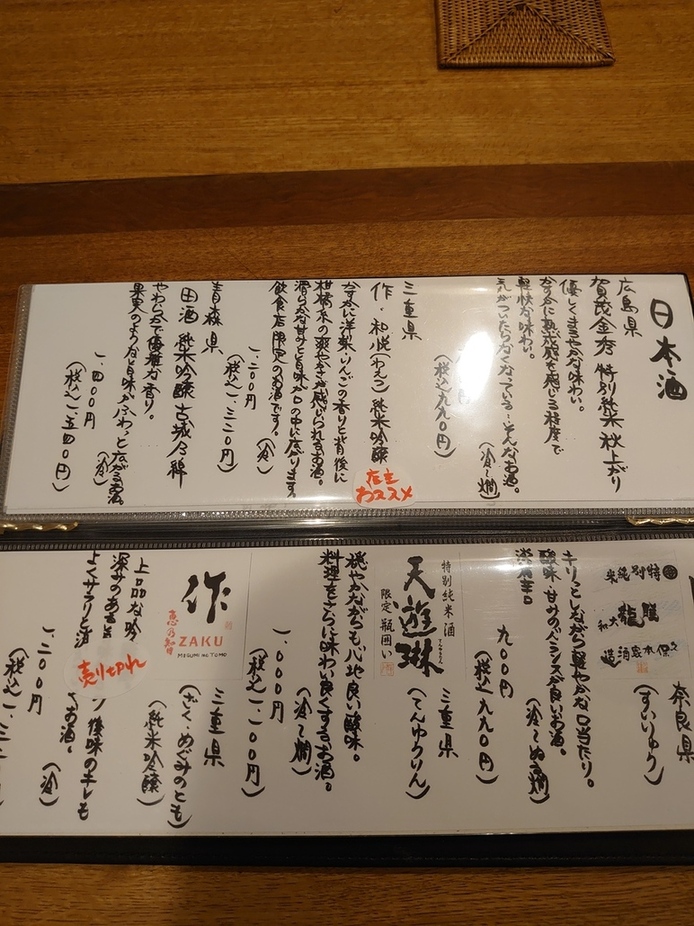 日本酒
広島県
賀茂金秀 特別純米 秋上がり
優しくまろやかな味わい。
なのに熟成感を感じる程度で
軽快な味わい。
気がついたらなくなっている…そんなお酒。
(冷〜燗)
(税込九九〇円)
三重県
作・和悦(わえつ)純米吟醸
店主
おススメ
なすかに洋梨・りんごの香りと背後に
柑橘系の爽やかさが感じられるお酒。
滑らかな甘みと旨味が口の中に広がります。
飲食店限定のお酒です。
(冷)
一、二〇〇円
(税込一、三二〇円)
青森県
田酒 純米吟醸 古城乃錦
やわらかで優雅な香り。
果実のような旨味がふわっと広がるお酒
(冷)
一、四〇〇円
(税込一、五四〇円)
特別純米
大和
久保本家酒造
奈良県
(すいりゅう)
キリッとしながら軽やかな口当たり。
酸味・甘みのバランスが良いお酒。
(冷〜ぬる燗)
九〇〇円
(税込九九〇円)
特別純米酒
天遊琳
限定瓶囲い
三重県
(てんゆうりん)
穏やかながらも心地良い酸味。
料理をさらに味わい良くするお酒。
(冷〜燗)
一、〇〇〇円
(税込一、一〇〇円)
作
恵乃智
ZAKU
MEGUMI no TOMO
三重県
(ざく・めぐみのとも)
(純米吟醸)
上品な吟
深みのある
後味のキレも
よくサラリと
お酒。
売り切れ
(冷)
一、二〇〇円